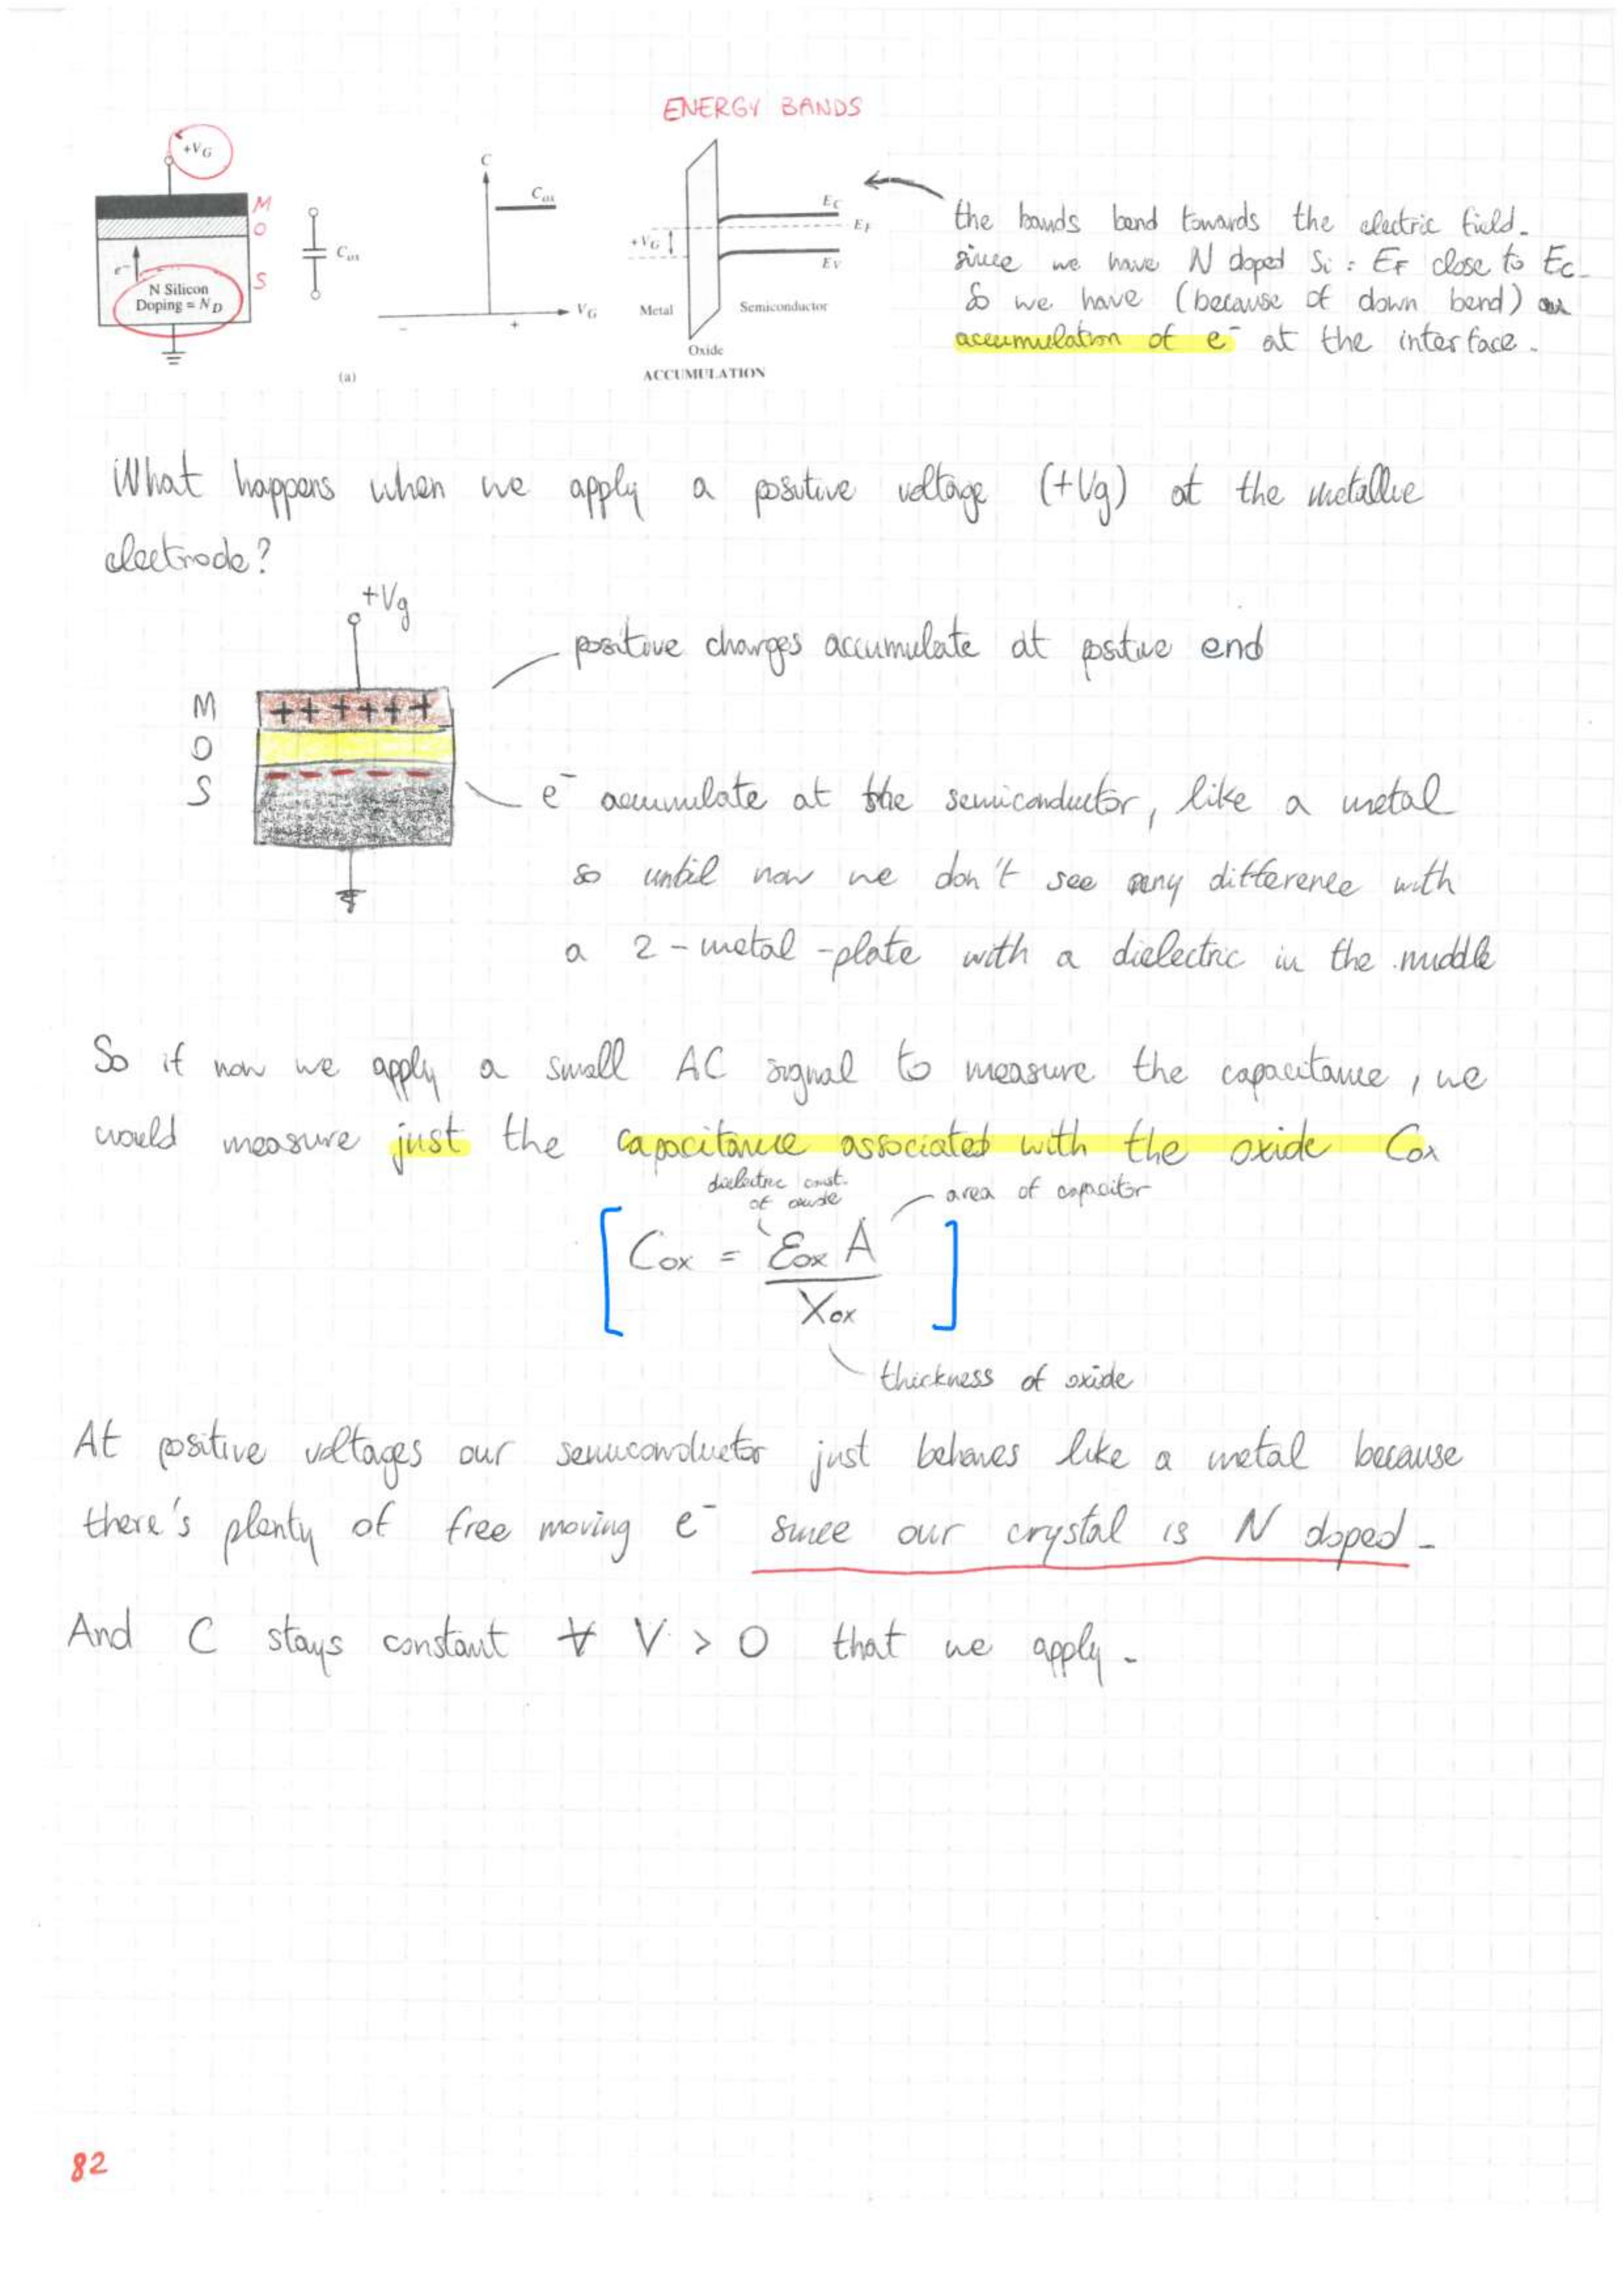 ENERGY BANDS
+VG
M
O
S
e-
N Silicon
Doping = ND
Cox
(a)
C
Cox
VG
-
+
+VG
EC
EF
EV
Metal
Semiconductor
Oxide
ACCUMULATION
the bands bend towards the electric field.
since we have N doped Si : EF close to EC.
So we have (because of down bend) an
accumulation of e- at the interface.
What happens when we apply a positive voltage (+Vg) at the metallic
electrode?
+Vg
positive charges accumulate at postive end
M
O
S
+ + + + + +
- - - - -
e- accumulate at the semiconductor, like a metal
so until now we don't see any difference with
a 2-metal-plate with a dielectric in the middle
So if now we apply a small AC signal to measure the capacitance, we
would measure just the capacitance associated with the oxide Cox
dielectric const.
of oxide
area of capacitor
[ Cox = Ɛox A ]
Xox
thickness of oxide
At positive voltages our semiconductor just behaves like a metal because
there's plenty of free moving e- since our crystal is N doped.
And C stays constant ∀ V > 0 that we apply.
82